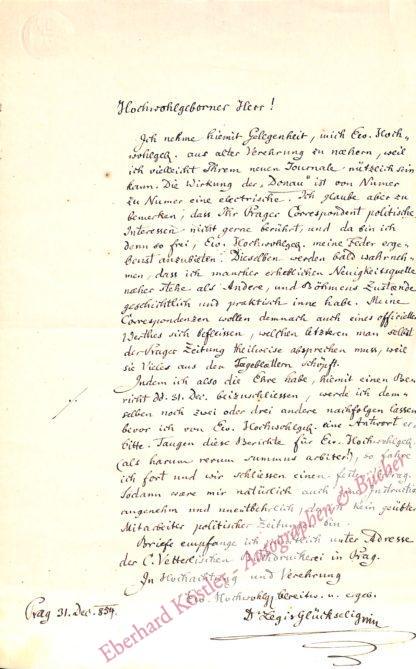 Hochwohlgeborner Herr!
Ich nehme hiemit Gelegenheit, mich Ew. Hoch-
wohlgeb. aus alter Verehrung zu næhern, weil
ich vielleicht Ihrem neuen Journale nützlich sein
kann. Die Wirkung der „Donau" ist von Numer
zu Numer eine electrische. Ich glaube aber zu
bemerken, dass Ihr Prager Correspondent politische
Interessen nicht gerne berührt, und da bin ich
denn so frei, Ew. Hochwohlgeb. meine Feder erge-
benst anzubieten. Dieselben werden bald wahrneh-
men, dass ich mancher erheblichen Neuigkeitsquelle
næher stehe als Andere, und Böhmens Zustände
geschichtlich und praktisch inne habe. Meine
Correspondenzen wollen demnach auch eines officiellen
Werthes sich befleissen, welchen letztern man selbst
der Prager Zeitung theilweise absprechen muss, weil
sie Vieles aus den Tageblattern schöpft.
Indem ich also die Ehre habe, hiemit einen Be-
richt dd. 31. Dec. beizuschliessen, werde ich dem-
selben noch zwei oder drei andere nachfolgen lassen,
bevor ich von Ew. Hochwohlgeb. eine Antwort er-
bitte. Taugen diese Berichte für Ew. Hochwohlgeb.
(als harum rerum summus arbiter!), so fahre
ich fort und wir schliessen einen Vertrag.
Sodann ware mir natürlich auch Instructio
angenehm und unentbehrlich, kein geübter
Mitarbeiter politischer Zeitungen bin.
Briefe empfange ich unter Adresse
der C. Vetterl'schen Buchdruckerei in Prag.
In Hochachtung und Verehrung
Ew. Hochwohlgb bereitw. u. ergeb.
Prag 31. Dec. 854. Dr Legis Glückselig
Eberhard Köstler Autographen & Bücher